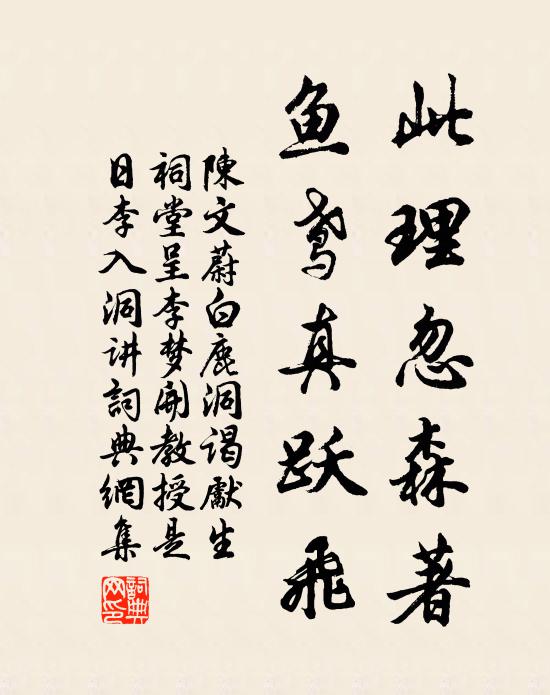 此理忽森著
鱼鸢真跃飞
陳文蔚白鹿洞谒獻生
祠堂呈李梦開教授是
日李入洞讲詞典網集
詞典網印